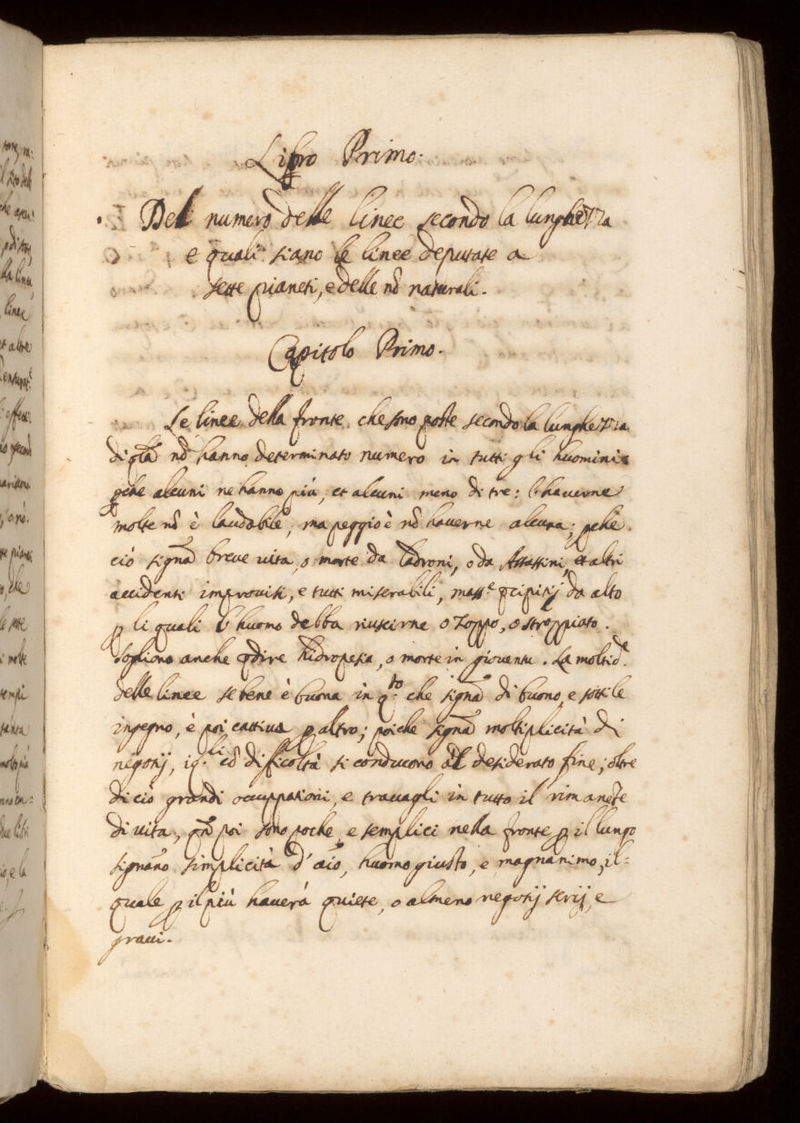 Libro Primo:
Del numero delle linee secondo la lunghezza
e quali siano le linee deputate a
sette pianeti, e delle nō naturali.
Capitolo Primo.
Le linee della fronte, che sono poste secondo la lunghezza
di q̄lla nō hanno determinato numero in tutti gli huomini
ꝑche alcuni ne hanno più, et alcuni meno di tre: l'haverne
molte nō è laudabile, ma peggio è nō haverne alcuna; ꝑche
ciò signā breve vita, o morte da ladroni, o da Assassini, et altri
accidenti improvisi, e tutti miserabili, mass.e p̄cipitij da alto
ꝑ li quali l'huomo debba riuscirne o zoppo, o stroppiato.
Sogliono anche p̄dire hidropesia, o morte in gioventu. La moltid.e
delle linee se bene è buona in q.to che signā di buono, e sottile
ingegno, è poi cattiva ꝑ altro; poiche signā moltiplicità di
negotij, i q.li cō difficoltà si conducono al desiderato fine; oltre
di ciò grandi occupationi, e travagli in tutto il rimanēte
di vita, qn̄ poi sono poche, e semplici nella fronte ꝑ il lungo
signāno simplicità d'aīo, huomo giusto, e magnanimo, il=
quale ꝑ il più haverà quiete, o almeno negotij serij, e
gravi.